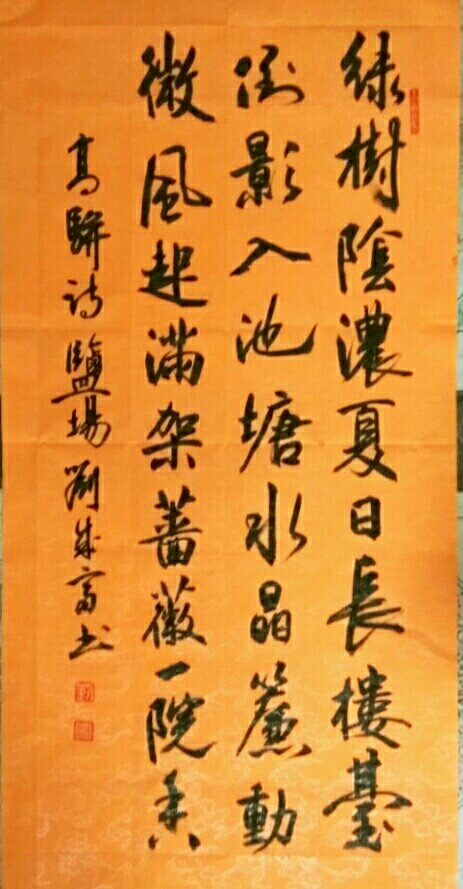 綠樹陰濃夏日長樓臺
倒影入池塘水晶簾動
微風起滿架薔薇一院香
高駢詩鹽場劉成富书